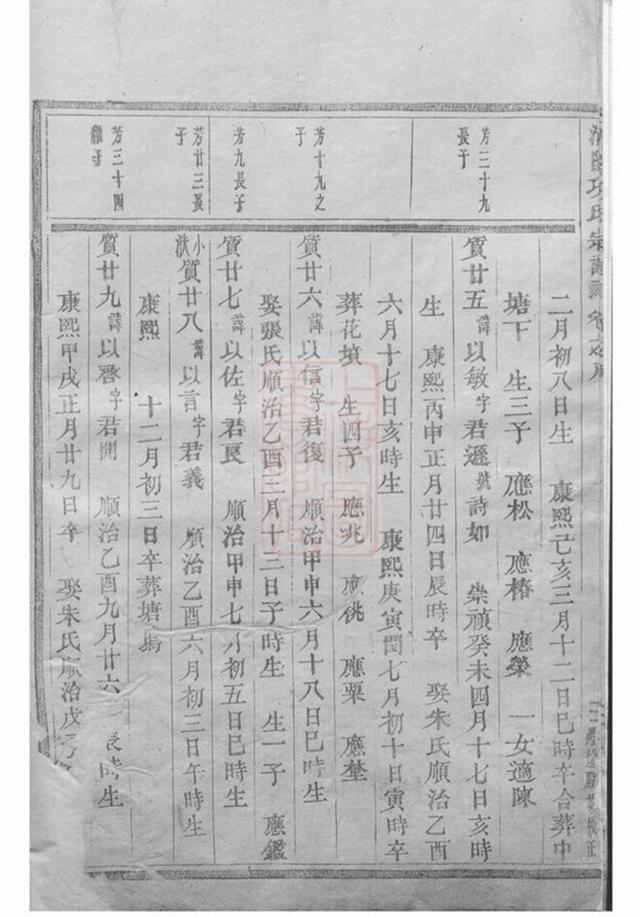 項氏宗譜
二月初八日生 康熙己亥三月十二日巳時卒合葬中
塘下 生三子 應松 應椿 應榮 一女適陳
芳三十九長子
質廿五諱以敏字君遜號詩如 崇禎癸未四月十七日亥時
生 康熙丙申正月廿四日辰時卒 娶朱氏順治乙酉
六月十七日亥時生 康熙庚寅閏七月初十日寅時卒
葬花墳 生四子 應兆 應桃 應栗 應埜
芳十九之子
質廿六諱以信字君復 順治甲申六月十八日巳時生
娶張氏順治乙酉三月十三日子時生 生一子 應鑑
芳九長子
質廿七諱以佐字君良 順治甲申七月初五日巳時生
芳廿三長子
小狀質廿八諱以言字君義 順治乙酉六月初三日午時生
康熙 十二月初三日卒葬塘塢
芳三十四繼子
質廿九諱以啓字君開 順治乙酉九月廿六日辰時生
康熙甲戌正月廿九日卒 娶朱氏順治戊子